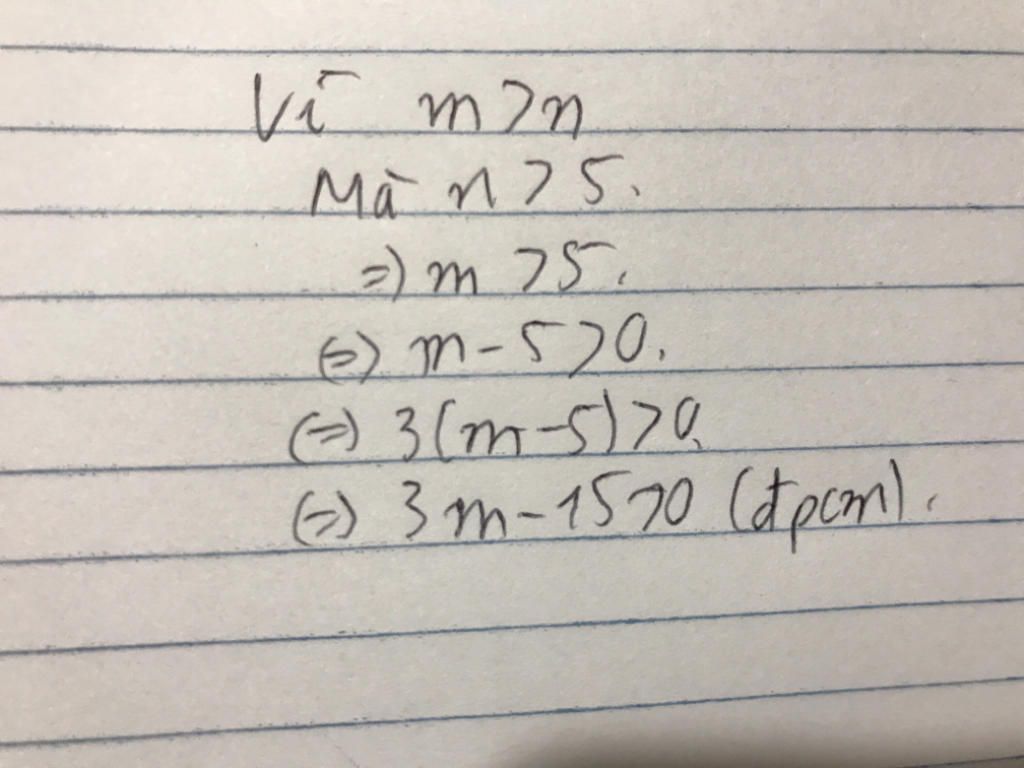 Vì m > n
Mà n > 5.
=) m > 5.
(=) m - 5 > 0.
(=) 3(m - 5) > 0.
(=) 3m - 15 > 0 (đpcm).